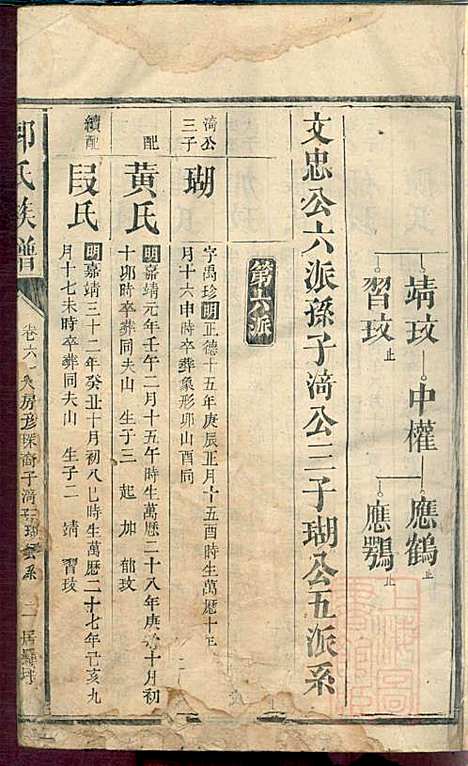 靖玟 中權 應鶴止
習玟止 應鶚止
文忠公六派孫子渏公三子瑚公五派系
第六派
渏公三子 瑚 字禹珍明正德十五年庚辰正月十五酉時生萬曆十五
月十六申時卒葬象形邜山酉向
一配 黃氏 明嘉靖元年壬午二月十五午時生萬曆二十八年庚 十月初
十邜時卒葬同夫山 生子三 起 加 郁玟
續配 段氏 明嘉靖三十二年癸丑十月初八巳時生萬曆二十七年己亥九
月十七未時卒葬同夫山 生子二 靖 習玟
氏族譜 卷六 房 裔子渏 瑚 系 二 居